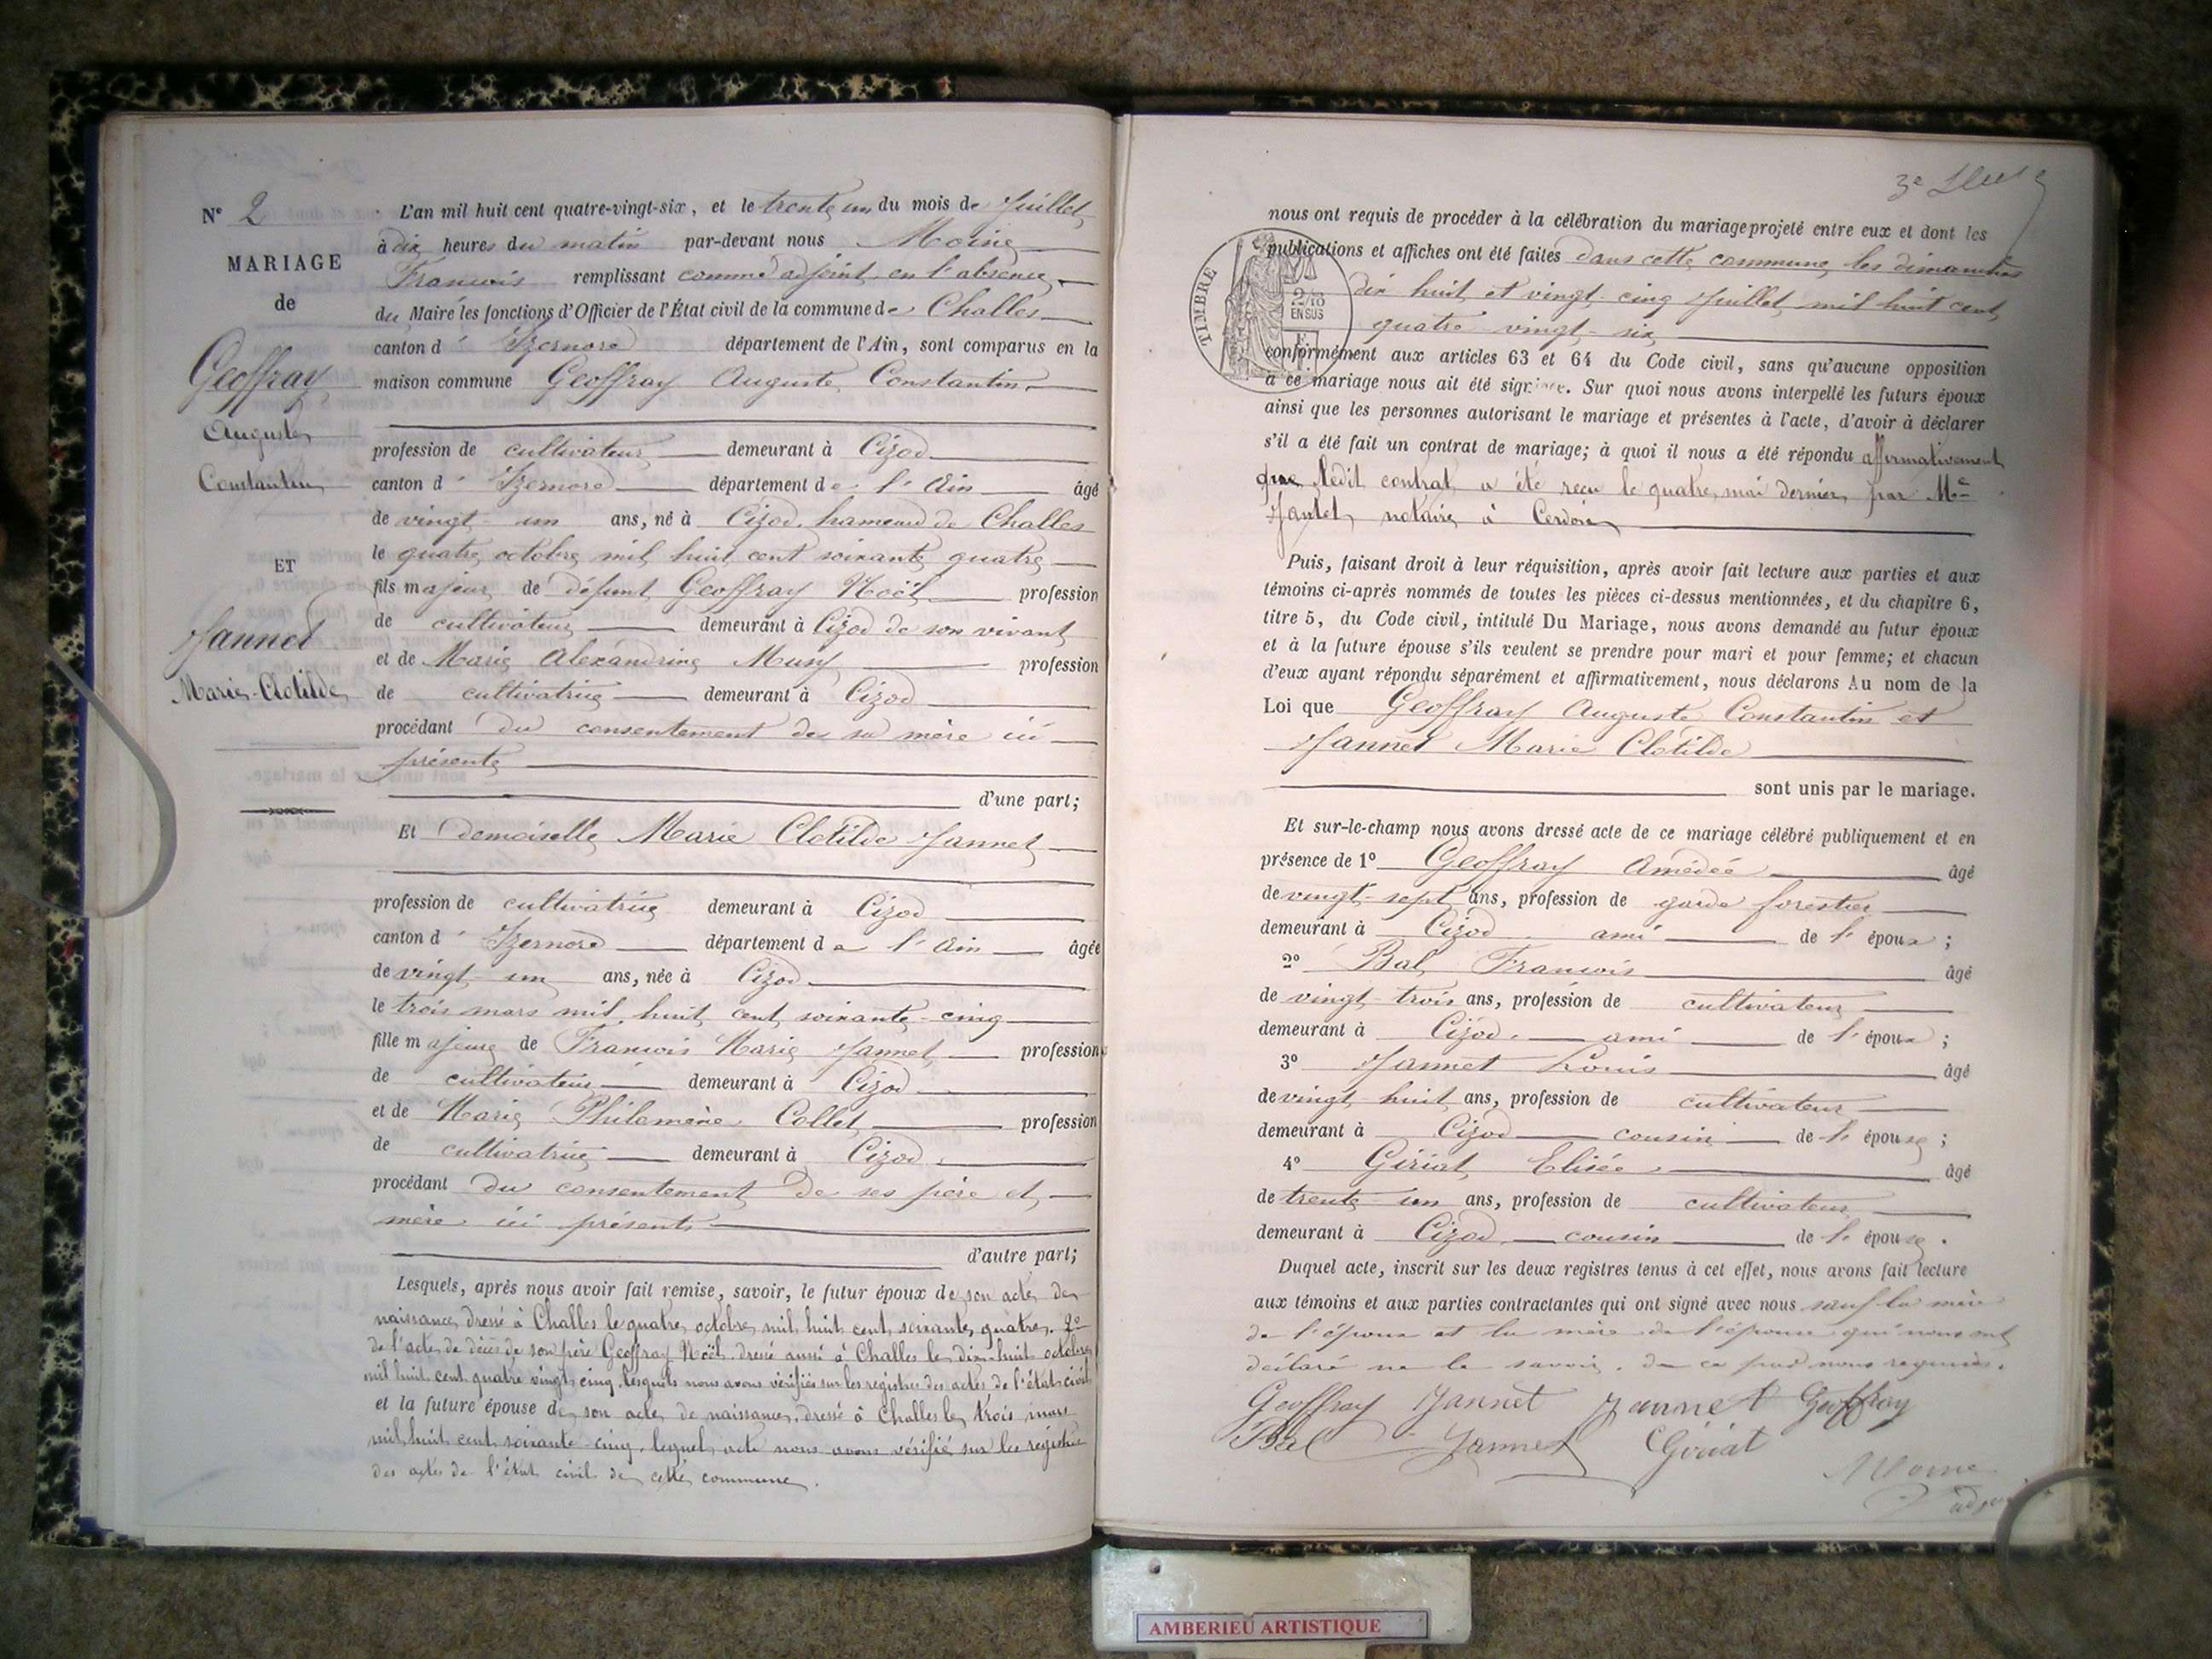 N° 2
MARIAGE
de
Geoffray
Auguste
Constantin
ET
Jannet
Marie-Clotilde
L'an mil huit cent quatre-vingt-six, et le trente un du mois de Juillet
à dix heures du matin par-devant nous Moine
Francois remplissant comme adjoint en l'absence
du Maire les fonctions d'Officier de l'État civil de la commune de Challes
canton d' Izernore département de l'Ain, sont comparus en la
maison commune Geoffray Auguste Constantin
profession de cultivateur demeurant à Cizod
canton d' Izernore département de l'Ain âgé
de vingt-un ans, né à Cizod hameau de Challes
le quatre octobre mil huit cent soixante quatre
fils majeur de défunt Geoffray Noël profession
de cultivateur demeurant à Cizod de son vivant
et de Marie Alexandrine Musy profession
de cultivatrice demeurant à Cizod
procédant du consentement de sa mère ici
présente
d'une part;
Et demoiselle Marie Clotilde Jannet
profession de cultivatrice demeurant à Cizod
canton d' Izernore département de l'Ain âgée
de vingt-un ans, née à Cizod
le trois mars mil huit cent soixante-cinq
fille majeure de Francois Marie Jannet profession
de cultivateur demeurant à Cizod
et de Marie Philomène Collet profession
de cultivatrice demeurant à Cizod
procédant du consentement de ses père et
mère ici présents
d'autre part;
Lesquels, après nous avoir fait remise, savoir, le futur époux de son acte de
naissance, dressé à Challes le quatre octobre mil huit cent soixante quatre. 2°
de l'acte de décès de son père Geoffray Noël dressé aussi à Challes le dix-huit octobre
mil huit cent quatre vingt cinq, lesquels nous avons vérifiés sur les registres des actes de l'état civil
et la future épouse de son acte de naissance, dressé à Challes le trois mars
mil huit cent soixante-cinq, lequel acte nous avons vérifié sur les registres
des actes de l'état civil de cette commune.
3e
nous ont requis de procéder à la célébration du mariage projeté entre eux et dont les
publications et affiches ont été faites dans cette commune les dimanches
dix huit et vingt-cinq Juillet mil huit cent
quatre vingt-six
TIMBRE
2/10
EN SUS
conformément aux articles 63 et 64 du Code civil, sans qu'aucune opposition
à ce mariage nous ait été signifiée. Sur quoi nous avons interpellé les futurs époux
ainsi que les personnes autorisant le mariage et présentes à l'acte, d'avoir à déclarer
s'il a été fait un contrat de mariage; à quoi il nous a été répondu affirmativement
que ledit contrat a été reçu le quatre mai dernier par Me
Jantet notaire à Cerdon
Puis, faisant droit à leur réquisition, après avoir fait lecture aux parties et aux
témoins ci-après nommés de toutes les pièces ci-dessus mentionnées, et du chapitre 6,
titre 5, du Code civil, intitulé Du Mariage, nous avons demandé au futur époux
et à la future épouse s'ils veulent se prendre pour mari et pour femme; et chacun
d'eux ayant répondu séparément et affirmativement, nous déclarons Au nom de la
Loi que Geoffray Auguste Constantin et
Jannet Marie Clotilde
sont unis par le mariage.
Et sur-le-champ nous avons dressé acte de ce mariage célébré publiquement et en
présence de 1° Geoffray Amédée âgé
de vingt-sept ans, profession de garde forestier
demeurant à Cizod ami de l'époux;
2° Bal Francois âgé
de vingt-trois ans, profession de cultivateur
demeurant à Cizod ami de l'époux;
3° Jannet Louis âgé
de vingt huit ans, profession de cultivateur
demeurant à Cizod cousin de l'épouse;
4° Gériat Elisée âgé
de trente un ans, profession de cultivateur
demeurant à Cizod cousin de l'épouse.
Duquel acte, inscrit sur les deux registres tenus à cet effet, nous avons fait lecture
aux témoins et aux parties contractantes qui ont signé avec nous sauf la mère
de l'époux et la mère de l'épouse qui nous ont
déclaré ne le savoir, de ce par nous requises.
Geoffray Jannet Jannet Geoffray
Bal Jannet Gériat
Moine
adjoint
AMBERIEU ARTISTIQUE